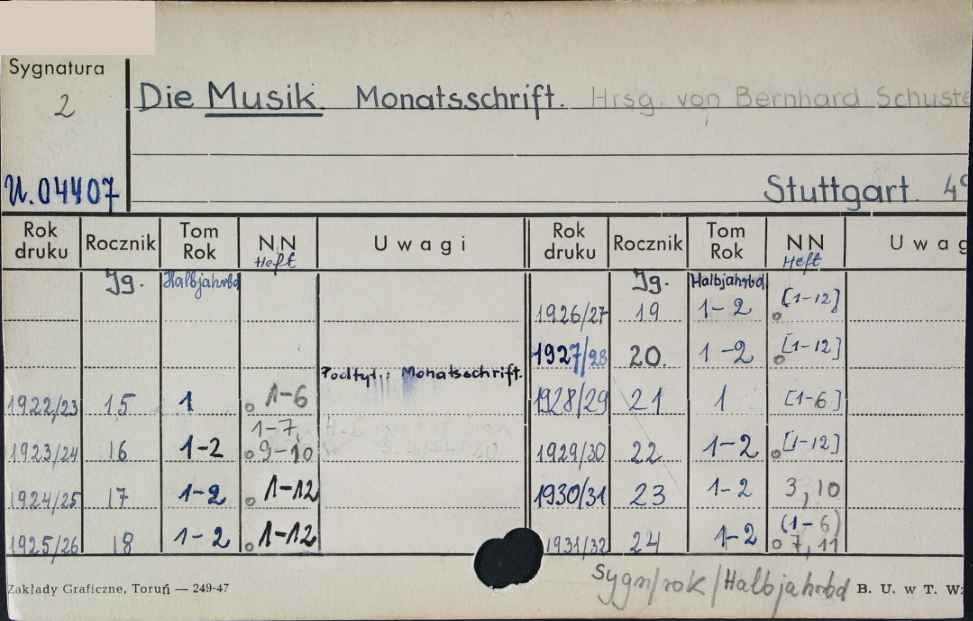 Sygnatura
2
Die Musik. Monatsschrift. Hrsg. von Bernhard Schuste
U.04407
Stuttgart. 49
Rok druku Rocznik Tom Rok NN Heft Uwagi Rok druku Rocznik Tom Rok NN Heft Uwag
Jg. Halbjahrbd Jg. Halbjahrbd.
1926/27 19 1-2 [1-12]
1927/28 20. 1-2 [1-12]
Podtyt.: Monatsschrift.
1922/23 15 1 1-6 1928/29 21 1 [1-6]
1923/24 16 1-2 1-7, 9-10 1929/30 22 1-2 [1-12]
1924/25 17 1-2 1-12 1930/31 23 1-2 3, 10
1925/26 18 1-2 1-12 1931/32 24 1-2 (1-6) 7, 11
Zakłady Graficzne, Toruń — 249-47
Sygn/rok/Halbjahrbd
B. U. w T. W